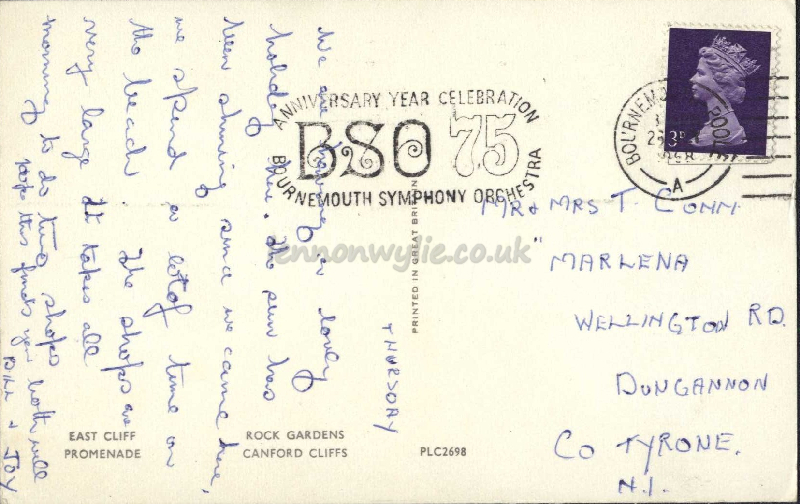 THURSDAY
We are having a lovely
holiday here. The sun has
been shining since we came here,
we spend a lot of time on
the beach. The shops are
very large It takes all
morning to do two shops
hope this finds you both well
BILL & JOY
ANNIVERSARY YEAR CELEBRATION
BSO 75
BOURNEMOUTH SYMPHONY ORCHESTRA
BOURNEMOUTH POOLE
1968
A
3D
MR & MRS T. CONN.
"MARLENA
WELLINGTON RD.
DUNGANNON
CO TYRONE.
N.I.
PRINTED IN GREAT BRITAIN
lennonwylie.co.uk
EAST CLIFF
PROMENADE
ROCK GARDENS
CANFORD CLIFFS
PLC2698